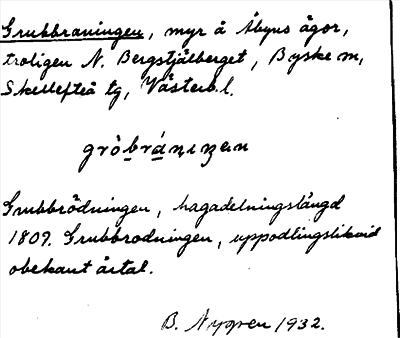 Grubbraningen, myr å Åbyns ägor,
troligen N. Bergstjälberget, Byske sn,
Skellefteå tg, Västerb. l.
gròbráṇıŋen
Grubbrödningen, hagadelningslängd
1809. Grubbrodningen, uppodlingslikvid
obekant årtal.
B. Nygren 1932.